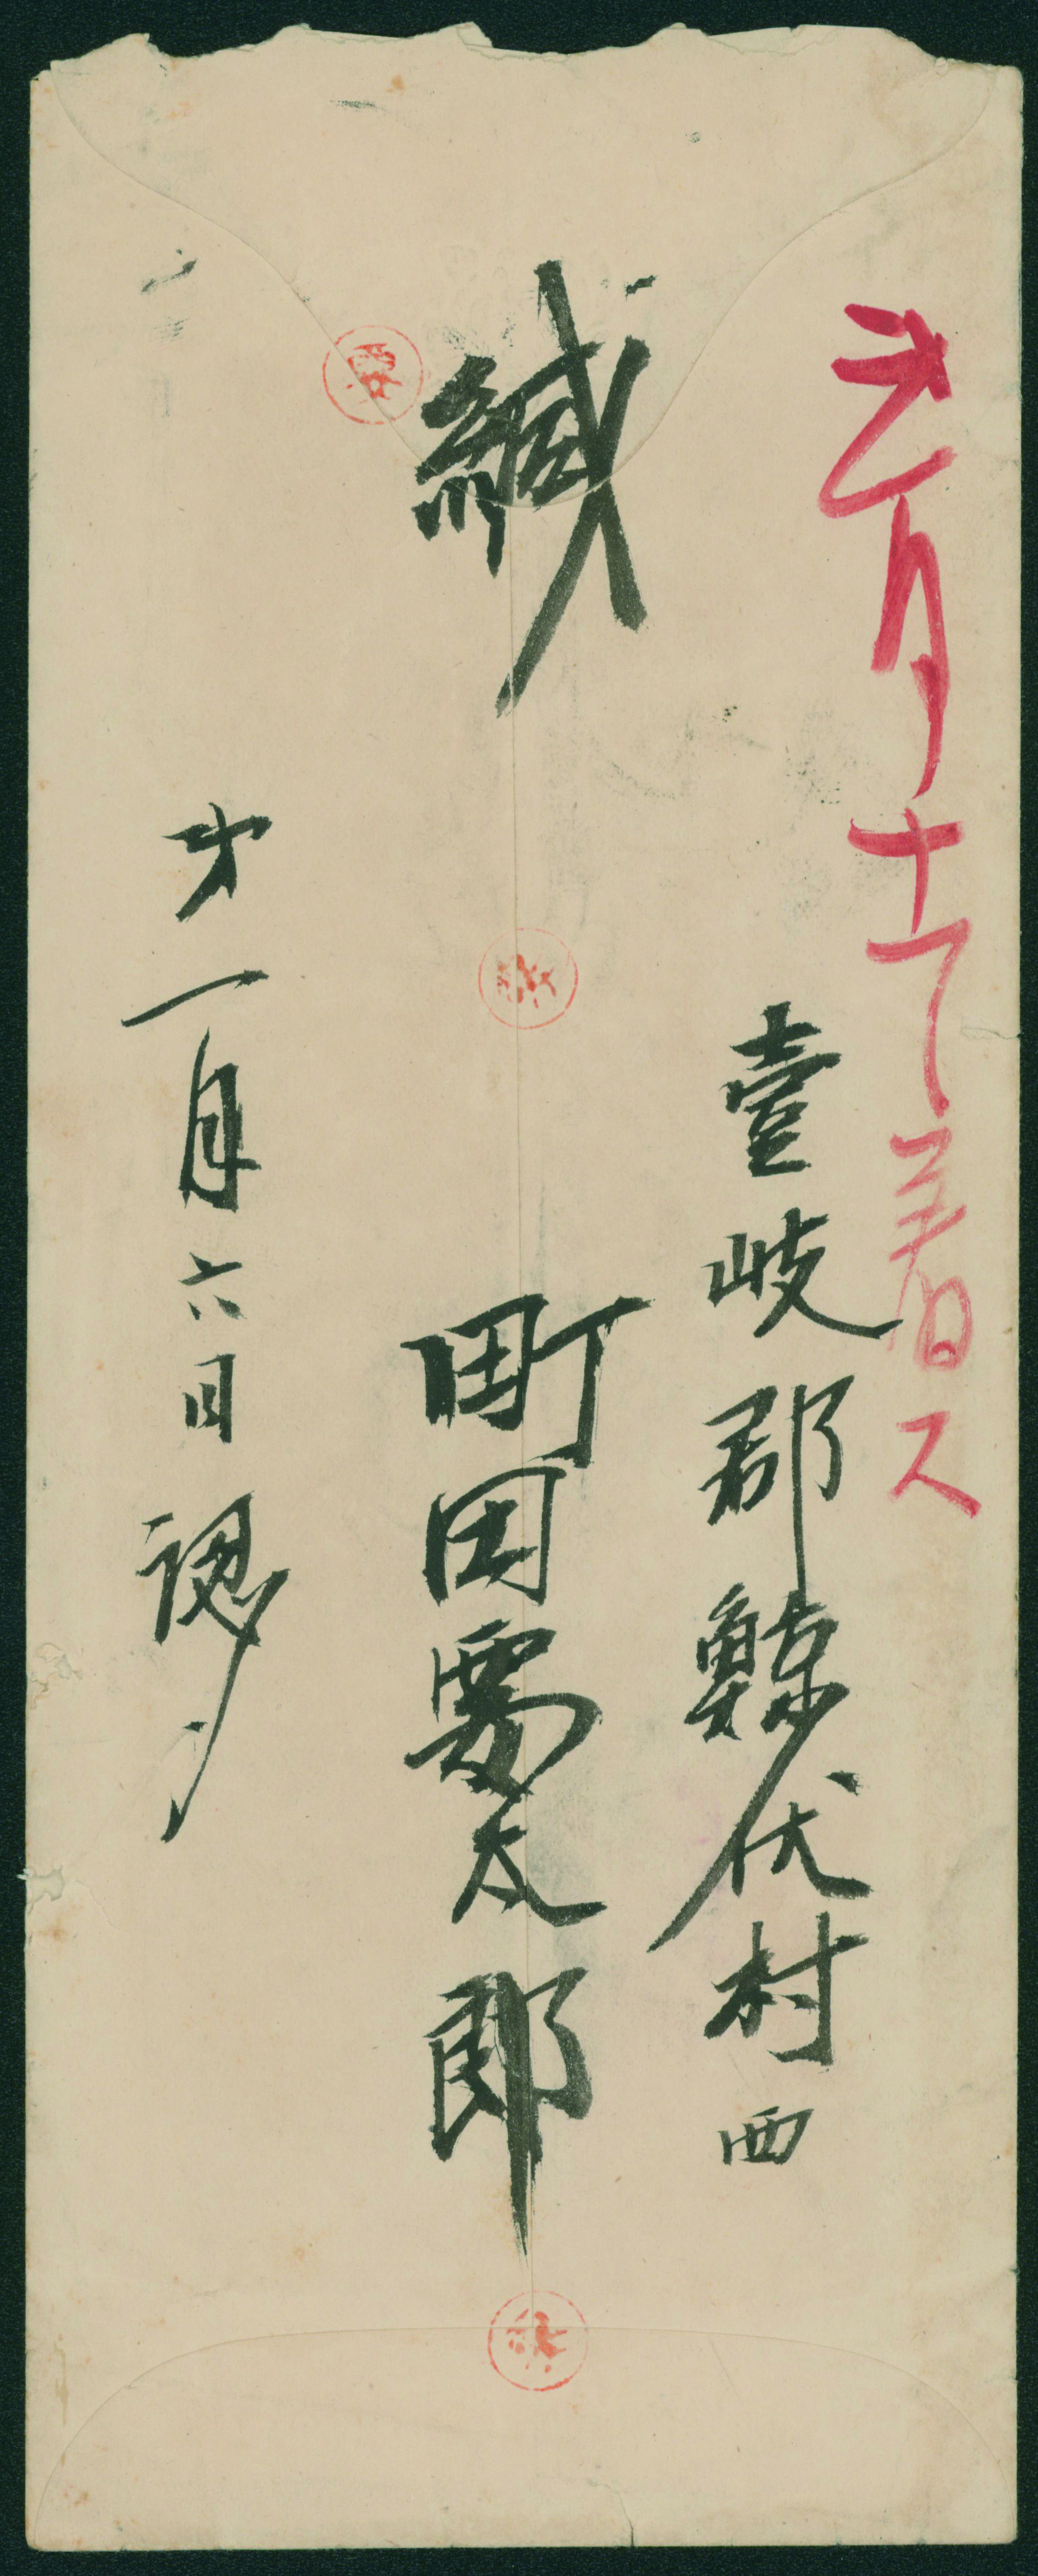 弐月十一日着ス
壹岐郡鯨伏村西
緘
町田要太郎
第一月六日認